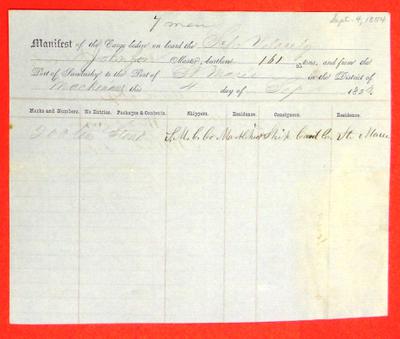 Sept. 4, 1854
7 men
Manifest of the Cargo lading on board the
Johnson Master, burthen 161 tons, and from the
Port of Sandusky to the Port of St Marie in the District of
Mackinac this 4 day of Sep 185
Marks and Numbers. No Entries. Packages & Contents. Shippers. Residence. Consignees. Residence.
200 Stone S. M. C. Co Ship Canal Co St. Marie